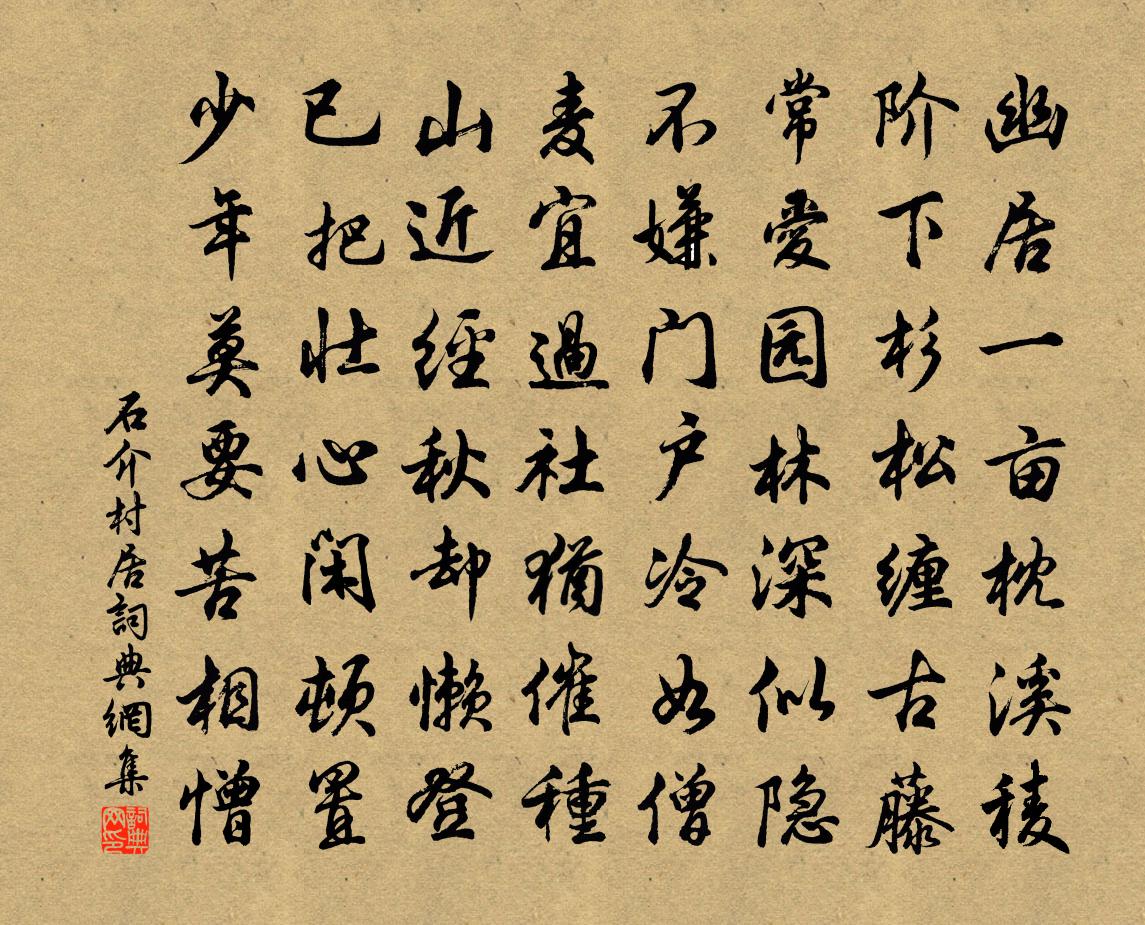 幽居一亩枕溪稜
阶下杉松缠古藤
常愛园林深似隐
不嫌门户冷如僧
麦宜過社猶催種
山近經秋却懒登
已把壮心闲顿置
少年莫要苦相憎
石介村居詞典網集
詞典網印